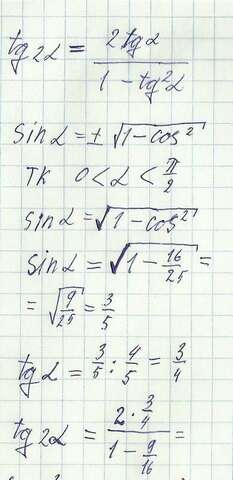 tg 2α = 2tgα / 1 - tg²α
sin α = ± √1 - cos²
тк 0 < α < π/2
sin α = √1 - cos²
sin α = √1 - 16/25 =
= √9/25 = 3/5
tg α = 3/5 : 4/5 = 3/4
tg 2α = 2 · 3/4 / 1 - 9/16 =